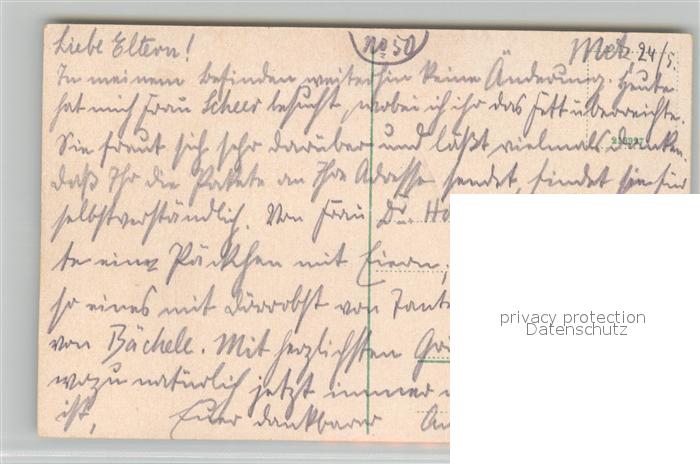 Liebe Eltern! No 50 Metz 24/5.
In meinem Befinden weiterhin keine Änderung. Heute
hat mich Frau Scheer besucht, wobei ich ihr das Fett überreichte.
Sie freut sich sehr darüber und läßt vielmals danken.
Daß Ihr die Pakete an Ihre Adresse sendet, findet sie für
selbstverständlich. Von Frau Dr. Ho
te einz Päckchen mit Eiern,
so eines mit Dörrobst von Tante
von Bächele. Mit herzlichsten
wozu natürlich jetzt immer
ist, Euer dankbarer
privacy protection
Datenschutz